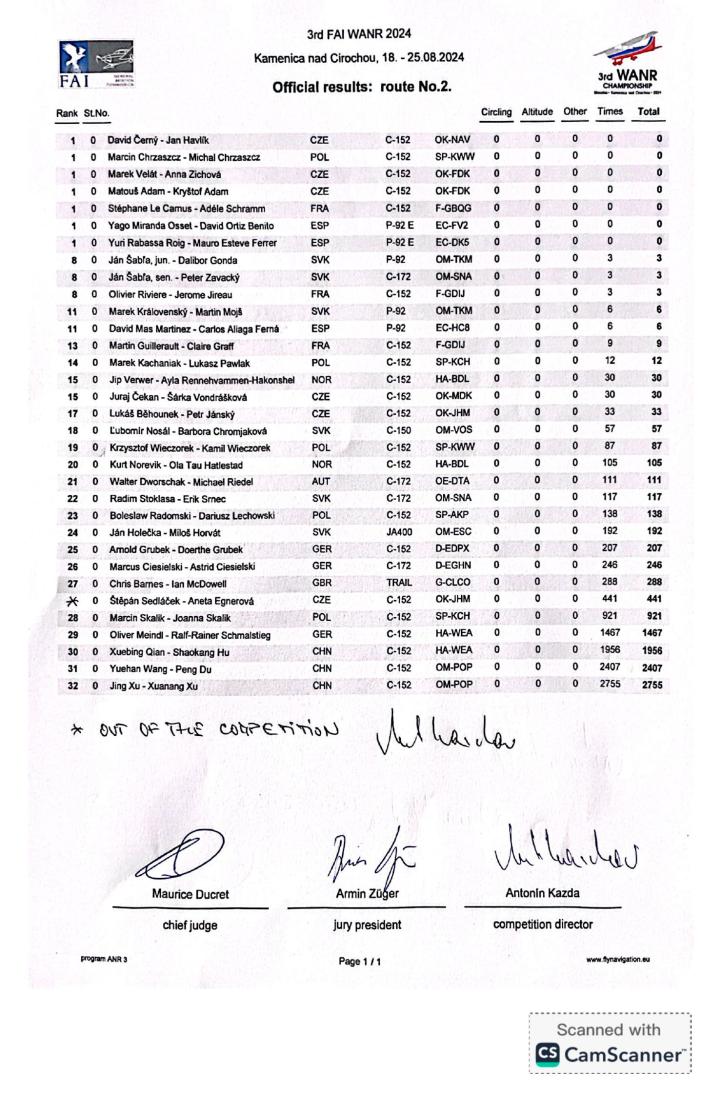 3rd FAI WANR 2024
Kamenica nad Cirochou, 18. - 25.08.2024
Official results: route No.2.
FAI
3rd WANR
CHAMPIONSHIP
Rank St.No. Circling Altitude Other Times Total
1 0 David Černý - Jan Havlík CZE C-152 OK-NAV 0 0 0 0 0
1 0 Marcin Chrzaszcz - Michal Chrzaszcz POL C-152 SP-KWW 0 0 0 0 0
1 0 Marek Velát - Anna Zichová CZE C-152 OK-FDK 0 0 0 0 0
1 0 Matouš Adam - Kryštof Adam CZE C-152 OK-FDK 0 0 0 0 0
1 0 Stéphane Le Camus - Adéle Schramm FRA C-152 F-GBQG 0 0 0 0 0
1 0 Yago Miranda Osset - David Ortiz Benito ESP P-92 E EC-FV2 0 0 0 0 0
1 0 Yuri Rabassa Roig - Mauro Esteve Ferrer ESP P-92 E EC-DK5 0 0 0 0 0
8 0 Ján Šabľa, jun. - Dalibor Gonda SVK P-92 OM-TKM 0 0 0 3 3
8 0 Ján Šabľa, sen. - Peter Zavacký SVK C-172 OM-SNA 0 0 0 3 3
8 0 Olivier Riviere - Jerome Jireau FRA C-152 F-GDIJ 0 0 0 3 3
11 0 Marek Královenský - Martin Mojš SVK P-92 OM-TKM 0 0 0 6 6
11 0 David Mas Martinez - Carlos Aliaga Ferná ESP P-92 EC-HC8 0 0 0 6 6
13 0 Martin Guillerault - Claire Graff FRA C-152 F-GDIJ 0 0 0 9 9
14 0 Marek Kachaniak - Lukasz Pawlak POL C-152 SP-KCH 0 0 0 12 12
15 0 Jip Verwer - Ayla Rennehvammen-Hakonshel NOR C-152 HA-BDL 0 0 0 30 30
15 0 Juraj Čekan - Šárka Vondrášková CZE C-152 OK-MDK 0 0 0 30 30
17 0 Lukáš Běhounek - Petr Jánský CZE C-152 OK-JHM 0 0 0 33 33
18 0 Ľubomír Nosál - Barbora Chromjaková SVK C-150 OM-VOS 0 0 0 57 57
19 0 Krzysztof Wieczorek - Kamil Wieczorek POL C-152 SP-KWW 0 0 0 87 87
20 0 Kurt Norevik - Ola Tau Hatlestad NOR C-152 HA-BDL 0 0 0 105 105
21 0 Walter Dworschak - Michael Riedel AUT C-172 OE-DTA 0 0 0 111 111
22 0 Radim Stoklasa - Erik Srnec SVK C-172 OM-SNA 0 0 0 117 117
23 0 Boleslaw Radomski - Dariusz Lechowski POL C-152 SP-AKP 0 0 0 138 138
24 0 Ján Holečka - Miloš Horvát SVK JA400 OM-ESC 0 0 0 192 192
25 0 Arnold Grubek - Doerthe Grubek GER C-152 D-EDPX 0 0 0 207 207
26 0 Marcus Ciesielski - Astrid Ciesielski GER C-172 D-EGHN 0 0 0 246 246
27 0 Chris Barnes - Ian McDowell GBR TRAIL G-CLCO 0 0 0 288 288
* 0 Štěpán Sedláček - Aneta Egnerová CZE C-152 OK-JHM 0 0 0 441 441
28 0 Marcin Skalik - Joanna Skalik POL C-152 SP-KCH 0 0 0 921 921
29 0 Oliver Meindl - Ralf-Rainer Schmalstieg GER C-152 HA-WEA 0 0 0 1467 1467
30 0 Xuebing Qian - Shaokang Hu CHN C-152 HA-WEA 0 0 0 1956 1956
31 0 Yuehan Wang - Peng Du CHN C-152 OM-POP 0 0 0 2407 2407
32 0 Jing Xu - Xuanang Xu CHN C-152 OM-POP 0 0 0 2755 2755
* OUT OF THE COMPETITION
Maurice Ducret Armin Züger Antonín Kazda
chief judge jury president competition director
program ANR 3 Page 1 / 1 www.flynavigation.eu
Scanned with
CS CamScanner™